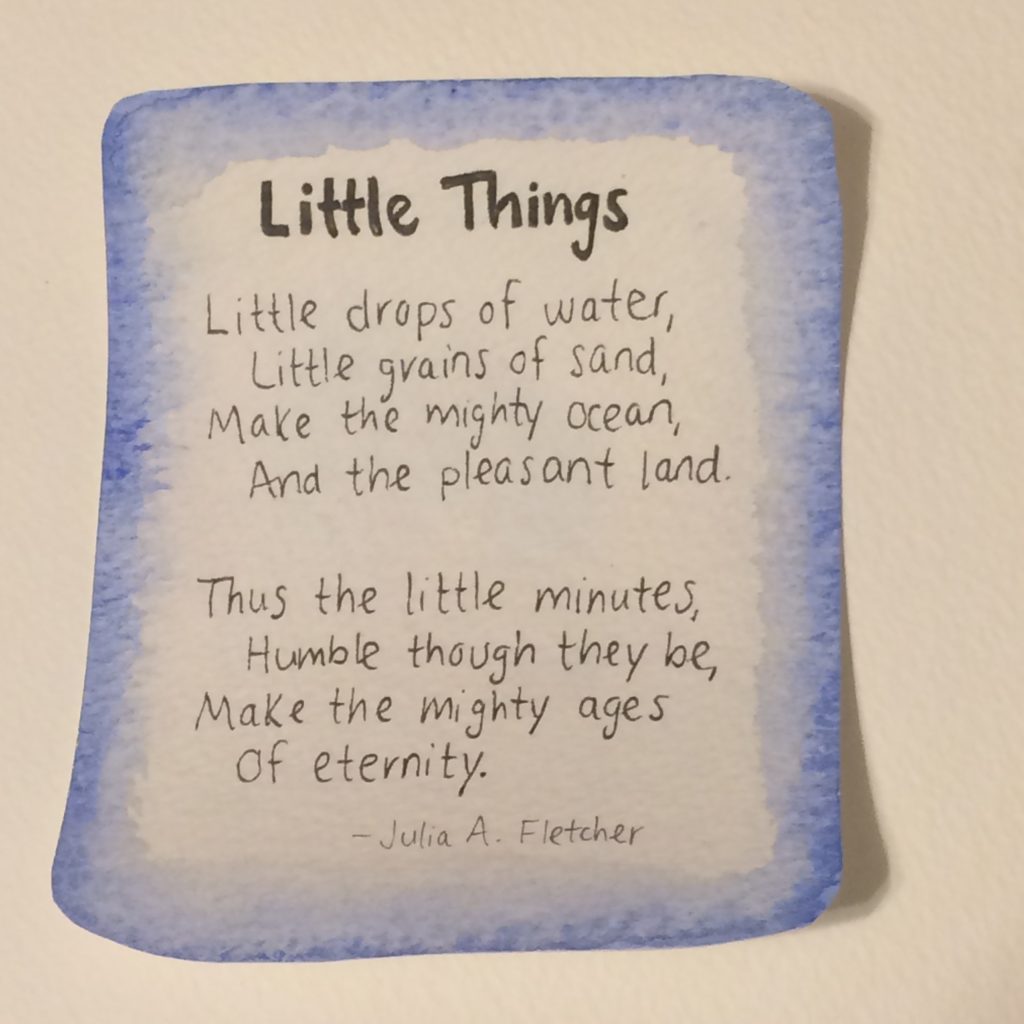 Little Things
Little drops of water,
Little grains of sand,
Make the mighty ocean,
And the pleasant land.
Thus the little minutes,
Humble though they be,
Make the mighty ages
Of eternity.
- Julia A. Fletcher